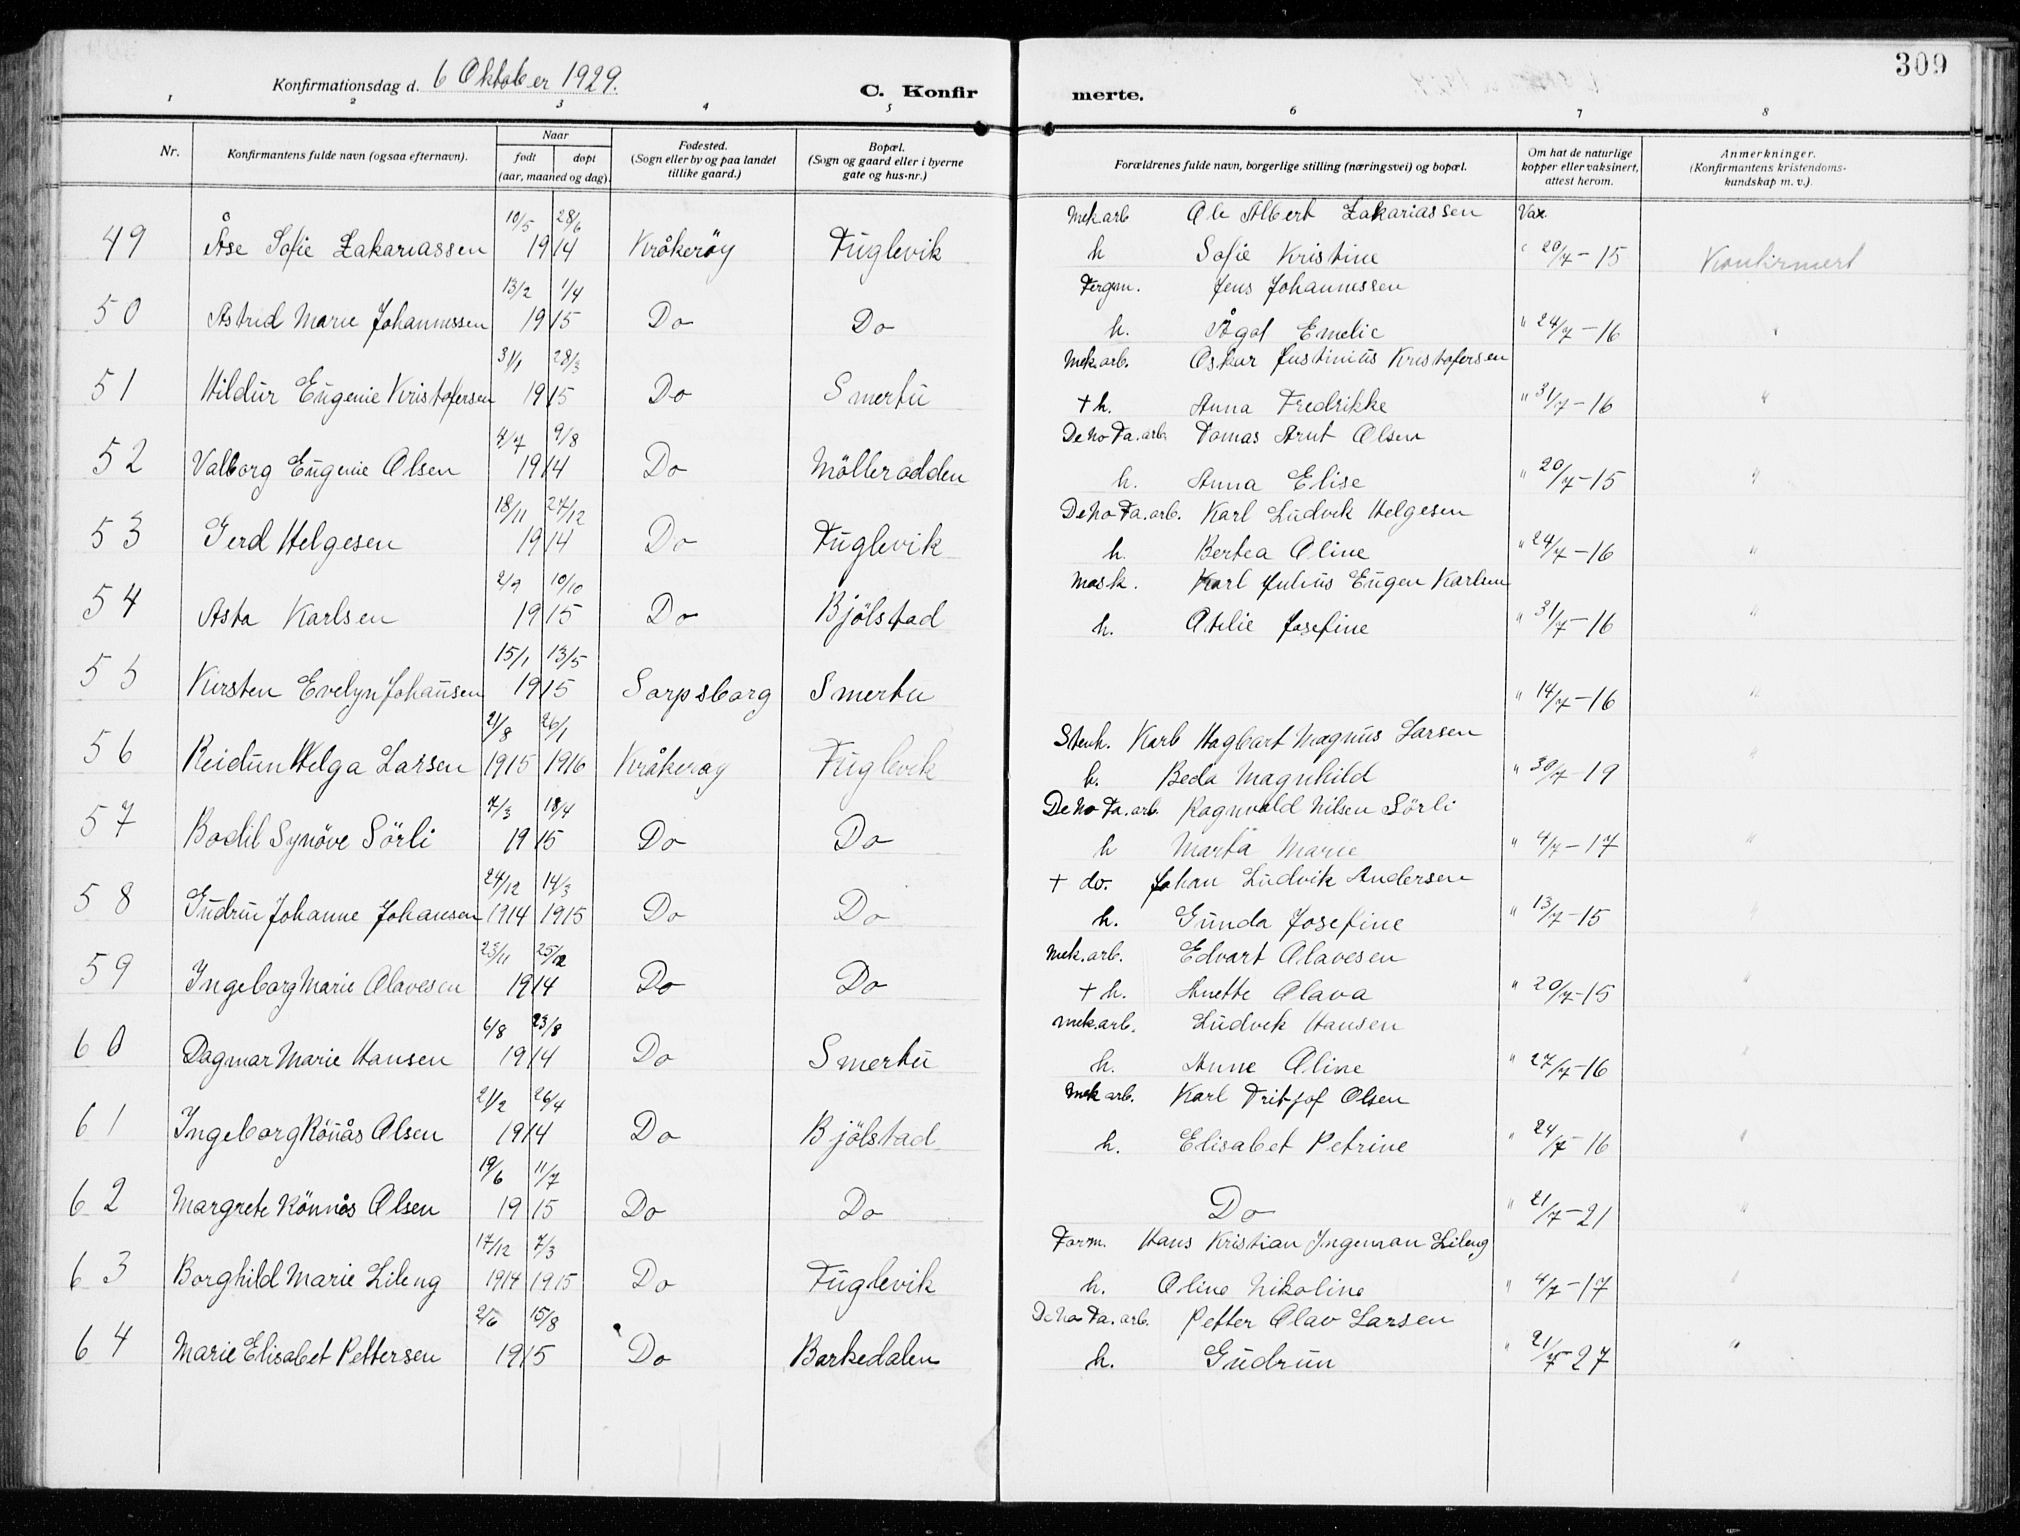 309
Konfirmationsdag d. 6 Oktober 1929.
C. Konfirmerte.
1 2 3 4 5 6 7 8
Nr.
Konfirmantens fulde navn (ogsaa efternavn).
Naar
født døpt
(aar, maaned og dag).
Fødested.
(Sogn eller by og paa landet
tillike gaard.)
Bopæl.
(Sogn og gaard eller i byerne
gate og hus-nr.)
Forældrenes fulde navn, borgerlige stilling (næringsvei) og bopæl.
Om hat de naturlige
kopper eller vaksinert,
attest herom.
Anmerkninger.
(Konfirmantens kristendoms-
kundskap m. v.).
10/5 28/6 Mek arb Ole Albert Zakariassen Vax.
49 Åse Sofie Zakariassen 1914 Kråkeröy Fuglevik h Sofie Kristine " 20/7-15 Konfirmert
13/2 1/4 Fergm. Jens Johannessen
50 Astrid Marie Johannessen 1915 Do Do h. Ågot Emelie " 24/7-16 "
31/1 28/3 Mek.arb. Oskar Justinius Kristofersen
51 Hildur Eugenie Kristofersen 1915 Do Smertu + h. Anna Fredrikke " 31/7-16 "
4/7 9/8 DeNoFa.arb. Tomas Arnt Olsen
52 Valborg Eugenie Olsen 1914 Do Mölleradden h. Anna Elise " 20/7-15 "
18/11 27/12 DeNoFa.arb. Karl Ludvik Helgesen
53 Gerd Helgesen 1914 Do Fuglevik h. Bertea Oline " 24/7-16 "
2/9 10/10 Mask. Karl Julius Eugen Karlsen
54 Asta Karlsen 1915 Do Bjölstad h. Otilie Josefine " 31/7-16 "
15/1 13/5
55 Kirsten Evelyn Johansen 1915 Sarpsborg Smertu " 14/7-16 "
21/8 26/1 Stenh. Karl Hagbart Magnus Larsen
56 Reidun Helga Larsen 1915 1916 Kråkeröy Fuglevik h. Beda Magnhild " 30/7-19 "
7/3 18/4 DeNoFa.arb. Ragnvald Nilsen Sörli
57 Bodil Synöve Sörli 1915 Do Do h Marta Marie " 4/7-17 "
24/12 14/3 + do. Johan Ludvik Andersen
58 Gudrun Johanne Johansen 1914 1915 Do Do h. Gunda Josefine " 13/7-15 "
23/11 25/12 Mek.arb. Edvart Olavesen
59 Ingeborg Marie Olavesen 1914 Do Do + h. Anette Olava " 20/7-15 "
6/8 23/8 mek.arb. Ludvik Hansen
60 Dagmar Marie Hansen 1914 Do Smertu h. Anne Oline " 27/7-16 "
21/2 26/4 Mek arb. Karl Fritjof Olsen
61 Ingeborg Rönås Olsen 1914 Do Bjölstad h. Elisabet Petrine " 24/7-16 "
19/6 11/7
62 Margrete Rönnås Olsen 1915 Do Do Do " 21/7-21 "
17/12 7/3 Form. Hans Kristian Ingeman Lileng
63 Borghild Marie Lileng 1914 1915 Do Fuglevik h. Oline Nikoline " 4/7-17 "
2/6 15/8 DeNoFa.arb. Petter Olav Larsen
64 Marie Elisabet Pettersen 1915 Do Barkedalen h. Gudrun " 21/7-27 "